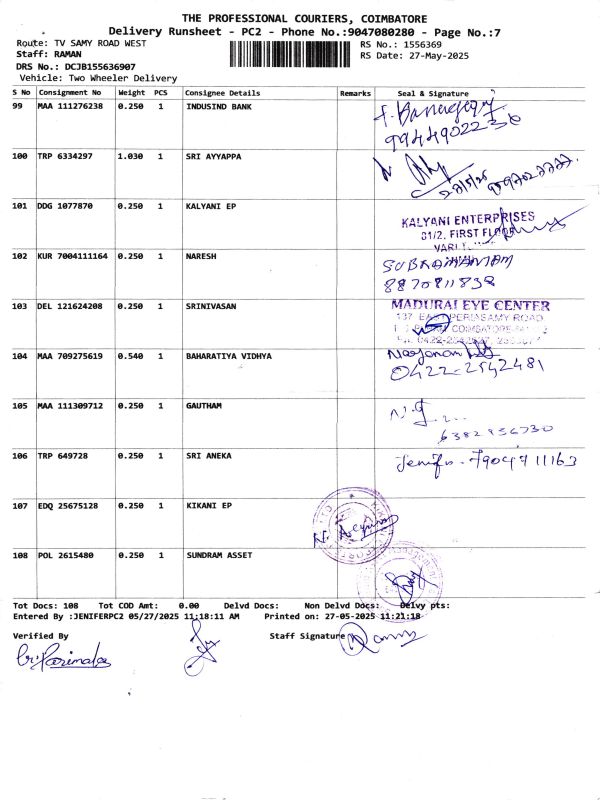 THE PROFESSIONAL COURIERS, COIMBATORE
Delivery Runsheet - PC2 - Phone No.:9047080280 - Page No.:7
Route: TV SAMY ROAD WEST RS No.: 1556369
Staff: RAMAN RS Date: 27-May-2025
DRS No.: DCJB155636907
Vehicle: Two Wheeler Delivery
S No Consignment No Weight PCS Consignee Details Remarks Seal & Signature
99 MAA 111276238 0.250 1 INDUSIND BANK
9944902236
100 TRP 6334297 1.030 1 SRI AYYAPPA
101 DDG 1077870 0.250 1 KALYANI EP
KALYANI ENTERPRISES
81/2, FIRST FLOOR
102 KUR 7004111164 0.250 1 NARESH
SUBRAMANIAM
8870811838
103 DEL 121624208 0.250 1 SRINIVASAN
MADURAI EYE CENTER
137 EAST PERIASAMY ROAD
104 MAA 709275619 0.540 1 BAHARATIYA VIDHYA
0422-2542481
105 MAA 111309712 0.250 1 GAUTHAM
6382956730
106 TRP 649728 0.250 1 SRI ANEKA
107 EDQ 25675128 0.250 1 KIKANI EP
108 POL 2615480 0.250 1 SUNDRAM ASSET
Tot Docs: 108 Tot COD Amt: 0.00 Delvd Docs: Non Delvd Docs: Delvy pts:
Entered By :JENIFERPC2 05/27/2025 11:18:11 AM Printed on: 27-05-2025 11:21:18
Verified By Staff Signature